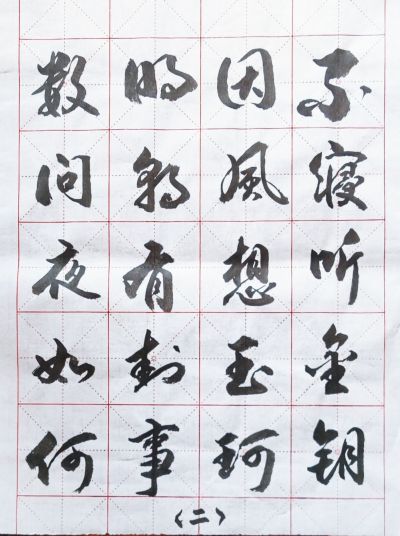 不寝听金钥
因風想玉珂
明朝有封事
数问夜如何
(二)